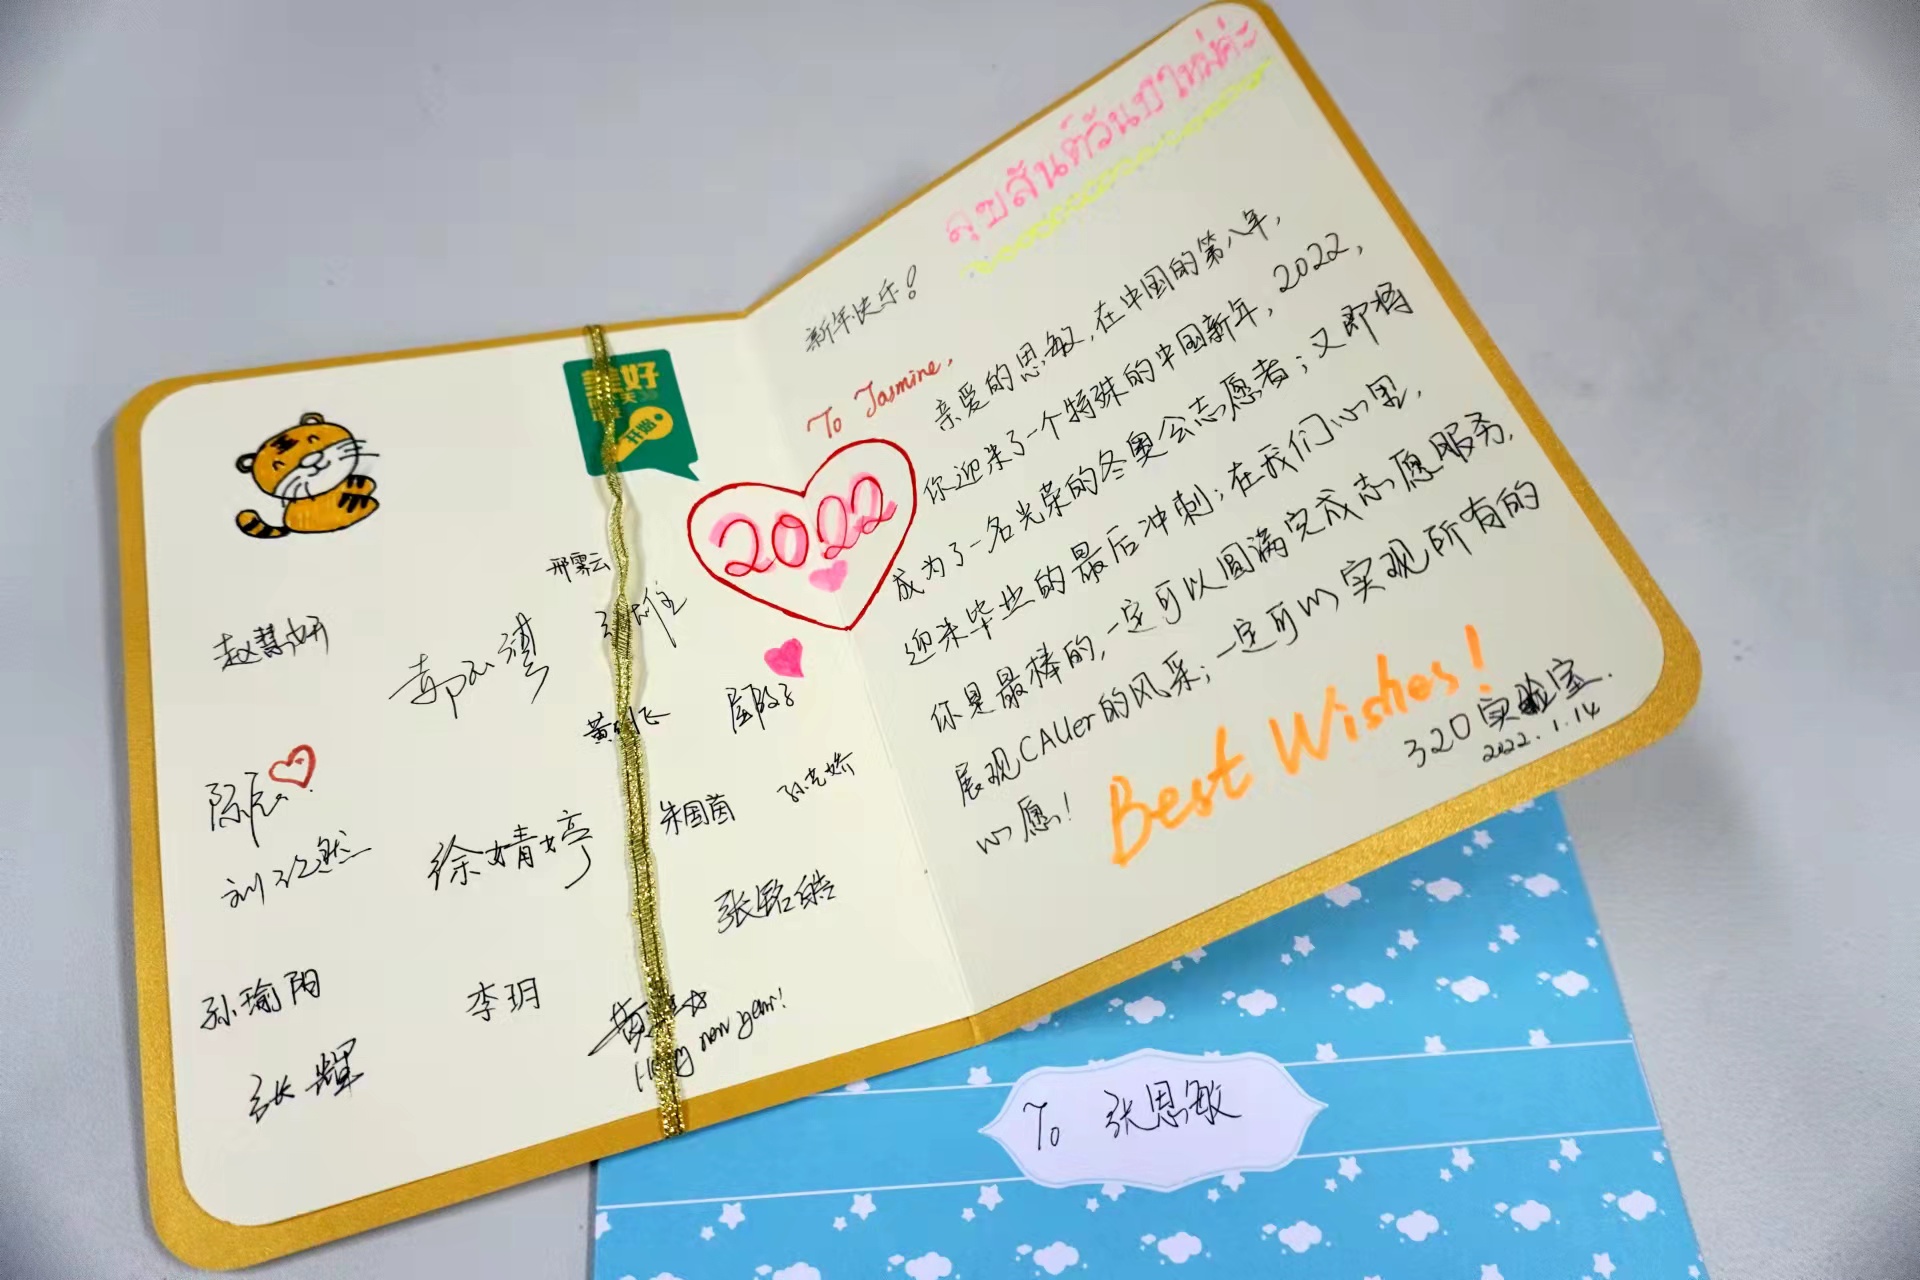 สุขสันต์วันปีใหม่ค่ะ
新年快乐！
To Jasmine,
亲爱的思敏，在中国的第八年，
你迎来了一个特殊的中国新年，2022，
成为了一名光荣的冬奥会志愿者；又即将
迎来毕业的最后冲刺；在我们心里，
你是最棒的，一定可以圆满完成志愿服务，
展现CAUer的风采；一定可以实现所有的
心愿！
Best Wishes!
320实验室.
2022.1.14
2022
美好
开始
赵慧妍
陈辰
孙瑜阳
张辉
徐婧婷
李玥
朱国茵
张铭皓
new year!
To 张思敏